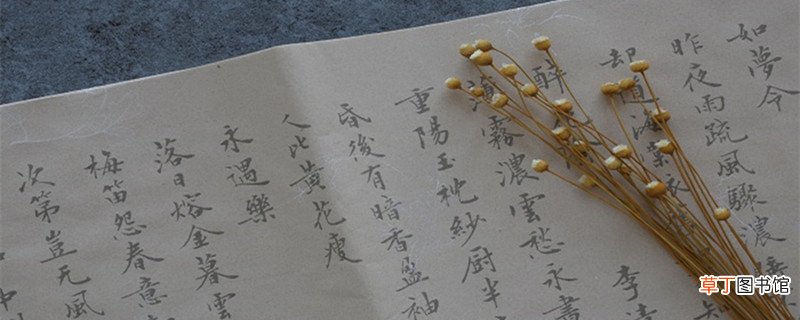 如夢令
昨夜雨疏風驟濃
却道海棠依 知
醉花 李清
薄霧濃雲愁永晝
重陽玉枕紗厨半
昏後有暗香盈袖
人比黃花瘦
永遇樂
落日熔金暮雲
梅笛怨春意
次第豈无風
中
草丁图书馆